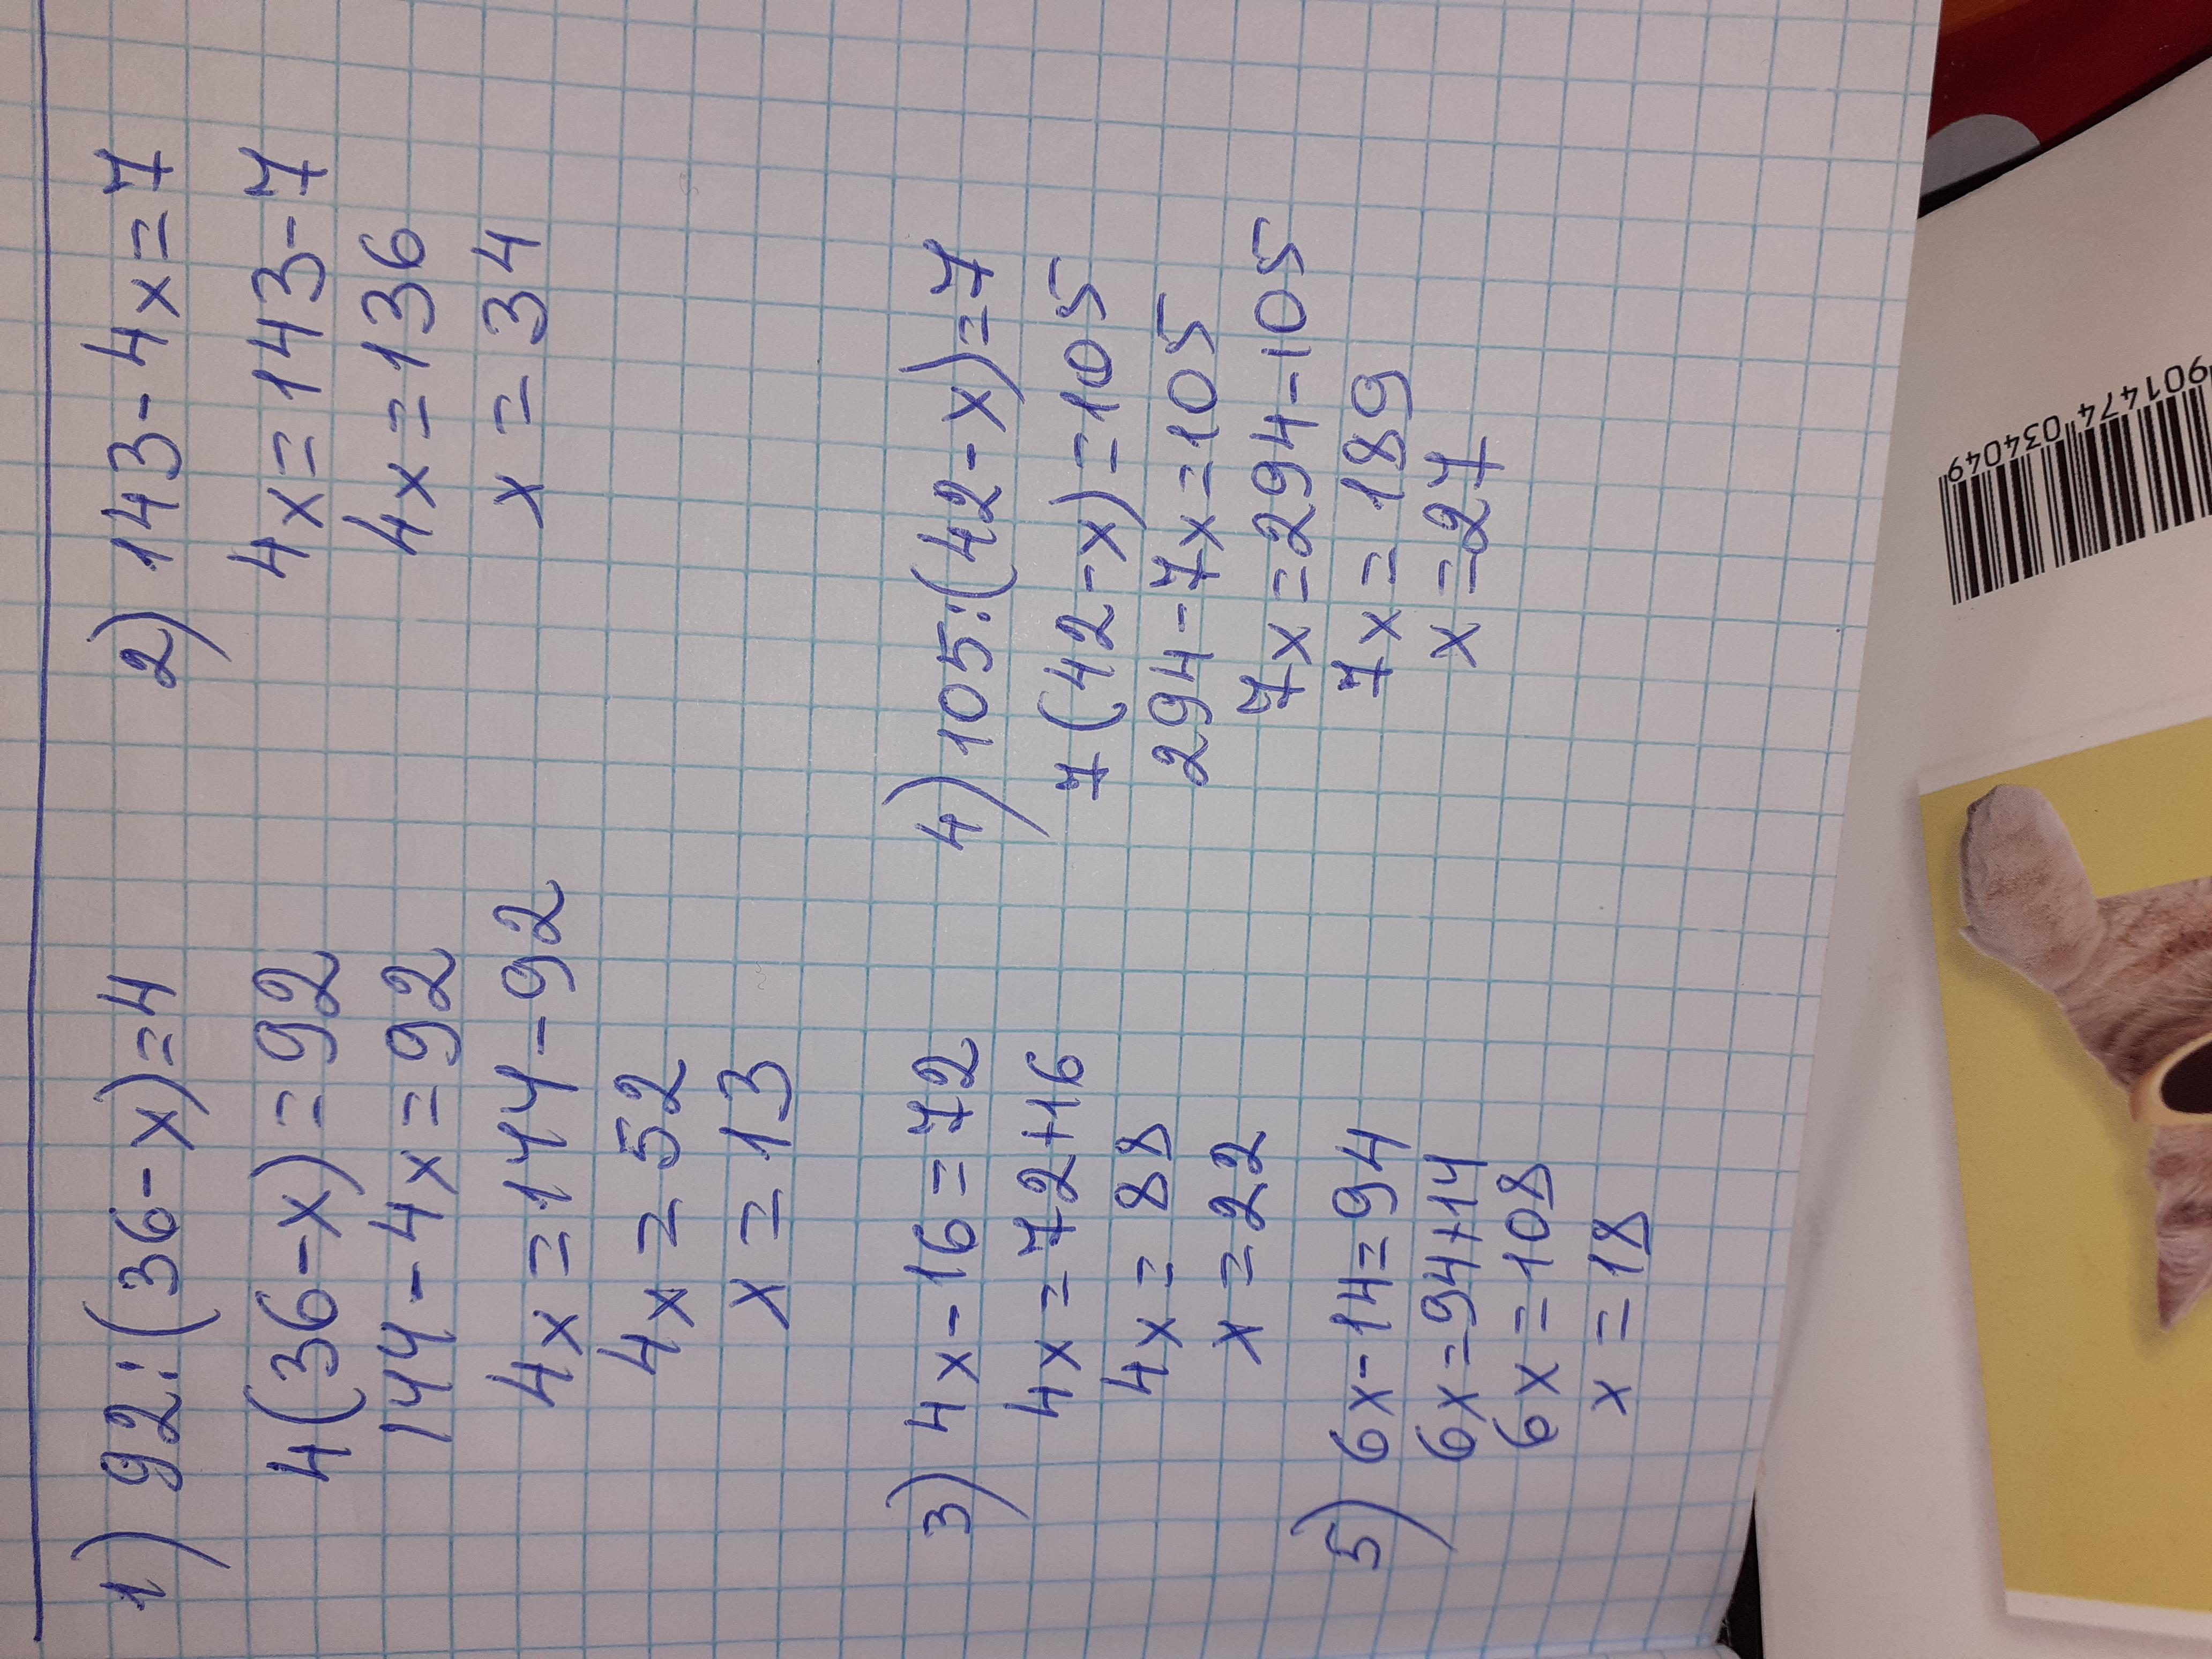 1) 92:(36-x)=4
4(36-x)=92
144-4x=92
4x=144-92
4x=52
x=13
2) 143-4x=7
4x=143-7
4x=136
x=34
3) 4x-16=72
4x=72+16
4x=88
x=22
4) 105:(42-x)=7
7(42-x)=105
294-7x=105
7x=294-105
7x=189
x=27
5) 6x-14=94
6x=94+14
6x=108
x=18
901474 034049